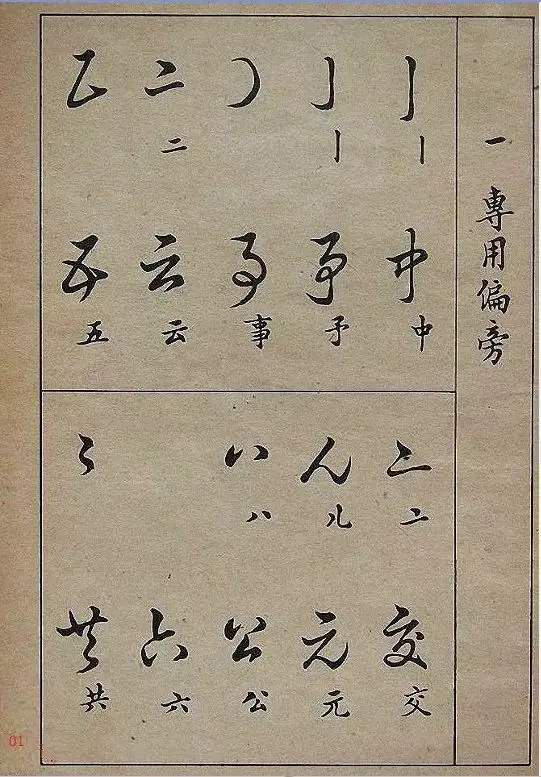 一 專用偏旁
丨 丨 中 中
亅 亅 矛
事 事
二 二 云 云
五 五
亠 亠 交 交
儿 儿 元 元
八 八 公 公
六 六
共 共
01